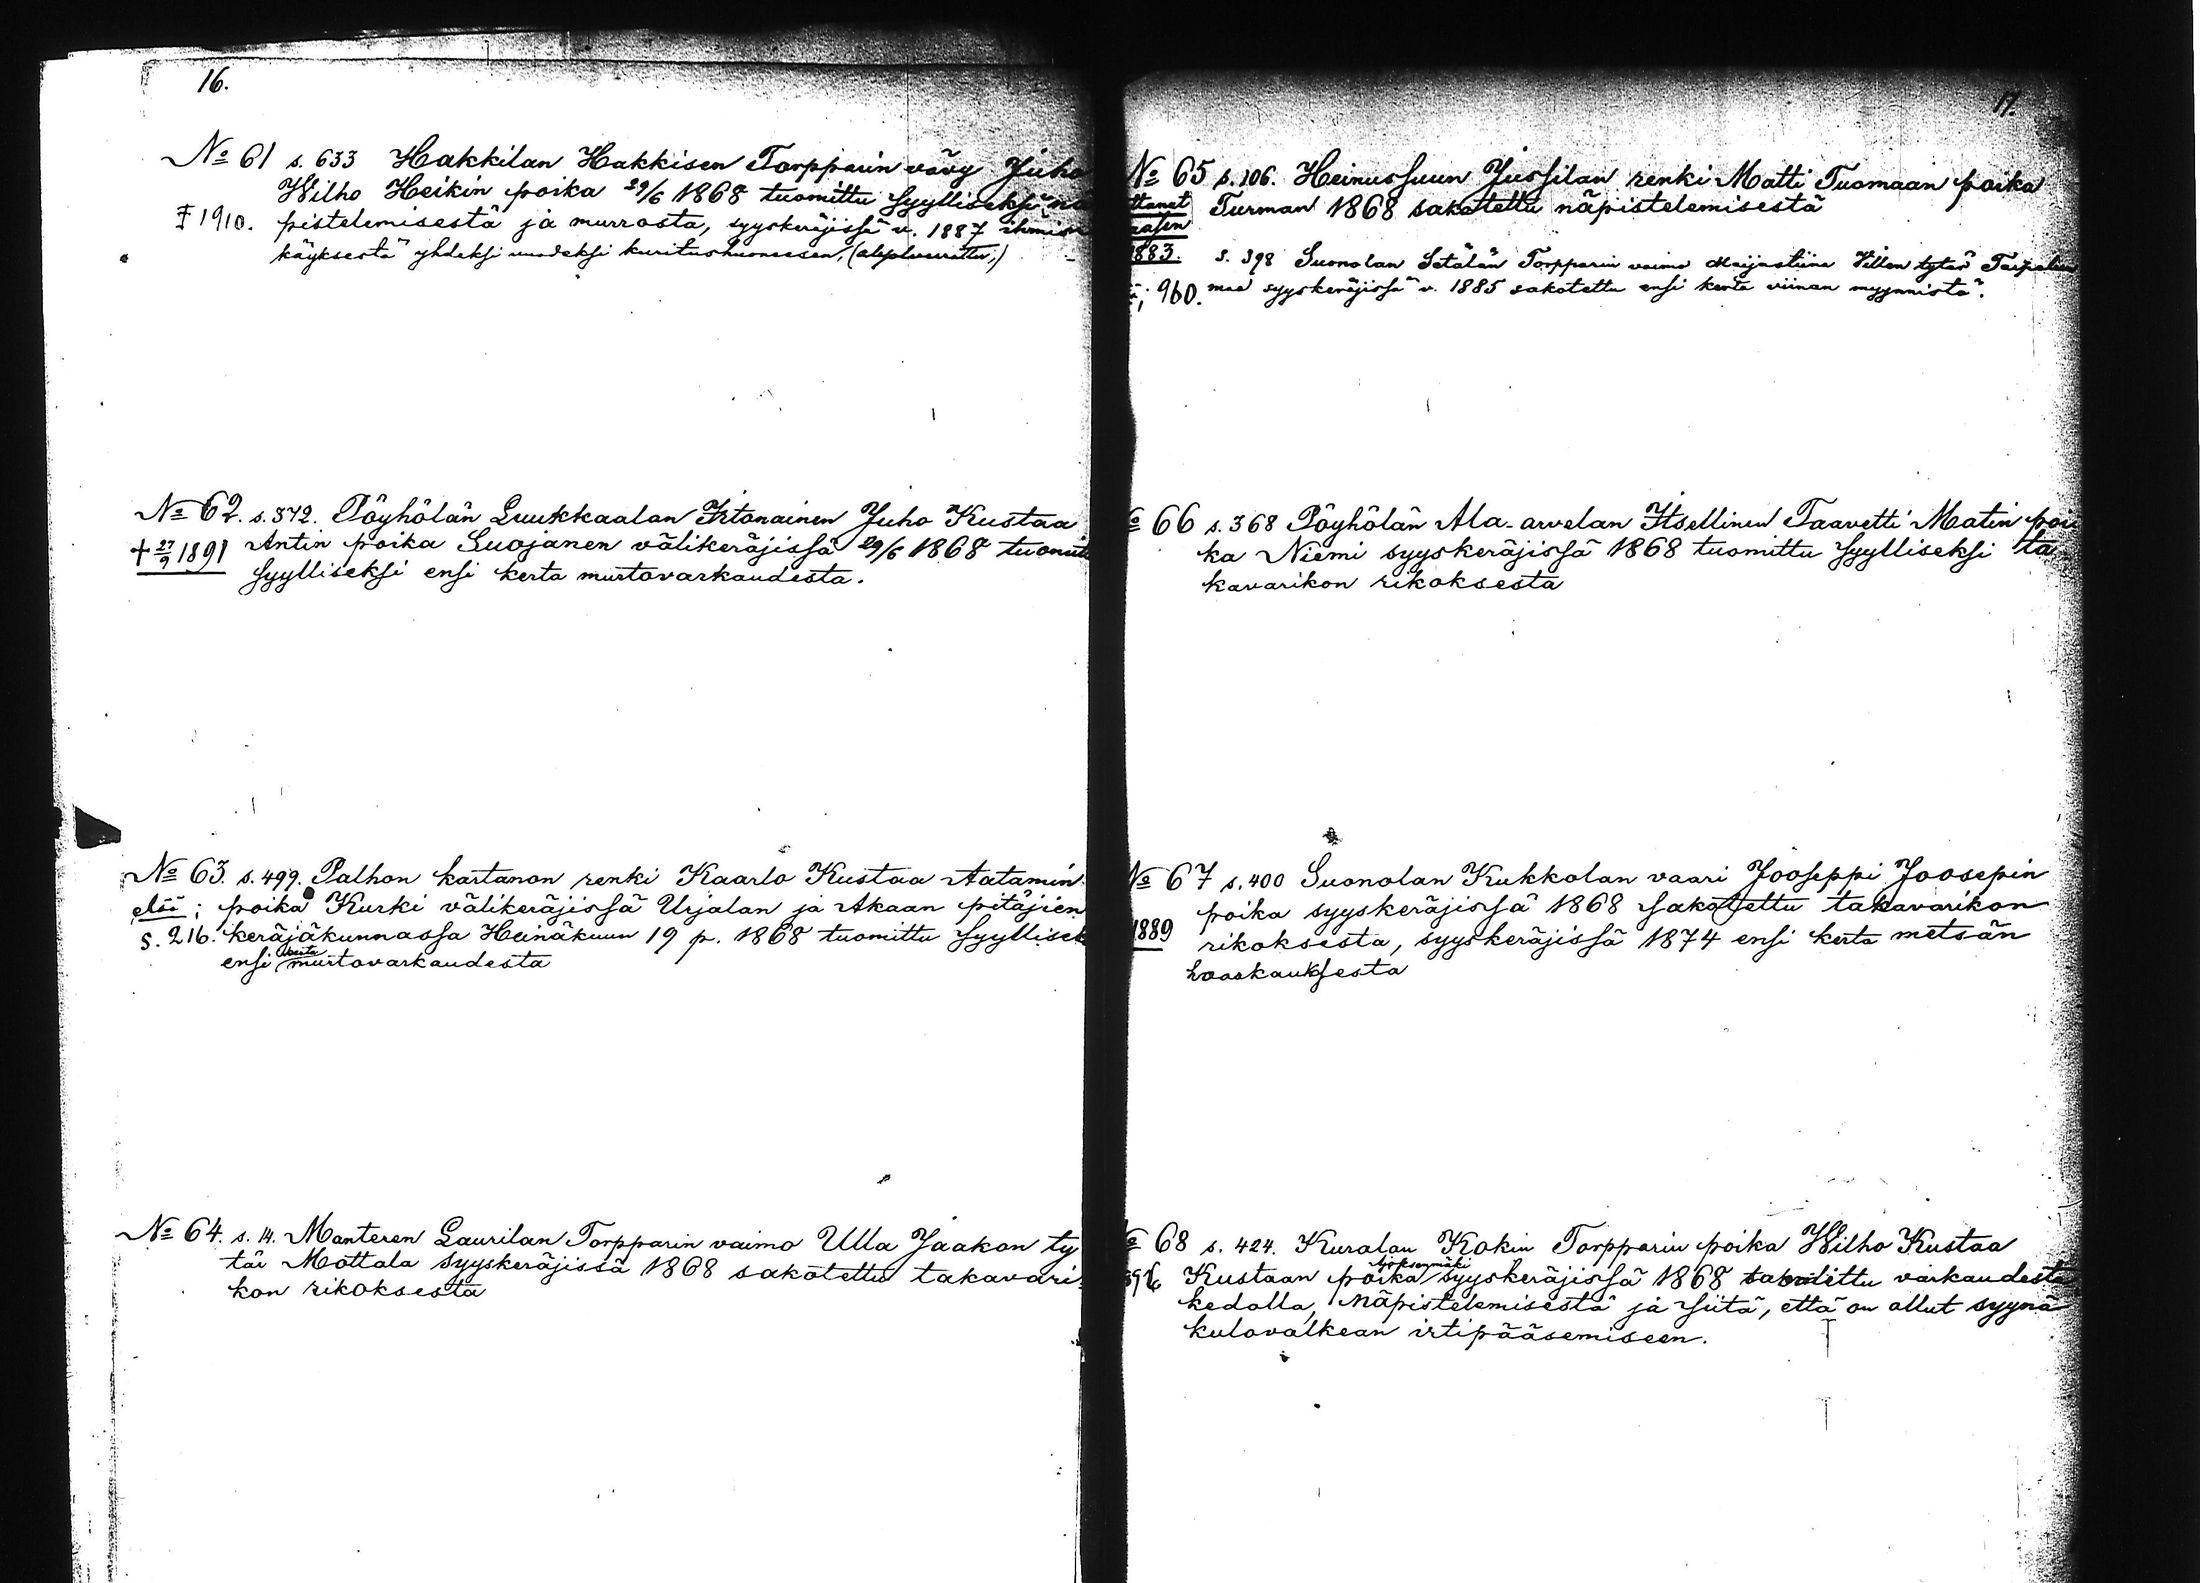 16.
No 61 s. 633 Hakkilan Hakkisen Torpparin vävy Juho
Wilho Heikin poika 29/6 1868 tuomittu syylliseksi nä
‡ 1910. pistelemisestä ja murrosta, syyskeräjissä v. 1887 ihmisen
käyksestä yhdeksi vuodeksi kuritushuoneesen,
No 62. s. 372. Pöyhölän Luukkaalan Irtonainen Juho Kustaa
Antin poika Suojanen välikeräjissä 29/6 1868 tuomittu
+ 27/9 1891
syylliseksi ensi kerta murtovarkaudesta.
No 63. s. 499. Palhon kartanon renki Kaarlo Kustaa Aatamin
elöi; poika Kurki välikeräjissä Urjalan ja Akaan pitäjien
s. 216. keräjäkunnassa Heinäkuun 19 p. 1868 tuomittu syyllisek
ensi kerta murtovarkaudesta
No 64. s. 14. Manteren Laurilan Torpparin vaimo Ulla Jaakon ty
tär Mottala syyskeräjissä 1868 sakotettu takavari-
kon rikoksesta
17.
No 65 s. 106. Heinussuun Jussilan renki Matti Tuomaan poika
ttanet Turman 1868 sakotettu näpistelemisestä
1883. s. 398 Suonolan Setälän Torpparin vaimo Maijastiina Villen tytär
960. maa syyskeräjissä v. 1885 sakotettu ensi kerta viinan myynnistä.
No 66 s. 368 Pöyhölän Ala-arvelan Itsellinen Taavetti Matin poi
ka Niemi syyskeräjissä 1868 tuomittu syylliseksi ta
kavarikon rikoksesta
No 67 s. 400 Suonolan Kukkolan vaari Jooseppi Joosepin
poika syyskeräjissä 1868 sakotettu takavarikon
1889 rikoksesta, syyskeräjissä 1874 ensi kerta metsän
haaskauksesta
No 68 s. 424. Kuralan Kokin Torpparin poika Wilho Kustaa
896 Kustaan poika syyskeräjissä 1868 varkaudesta
kedolla, näpistelemisestä ja siitä, että on ollut syynä
kulovalkean irtipääsemiseen.